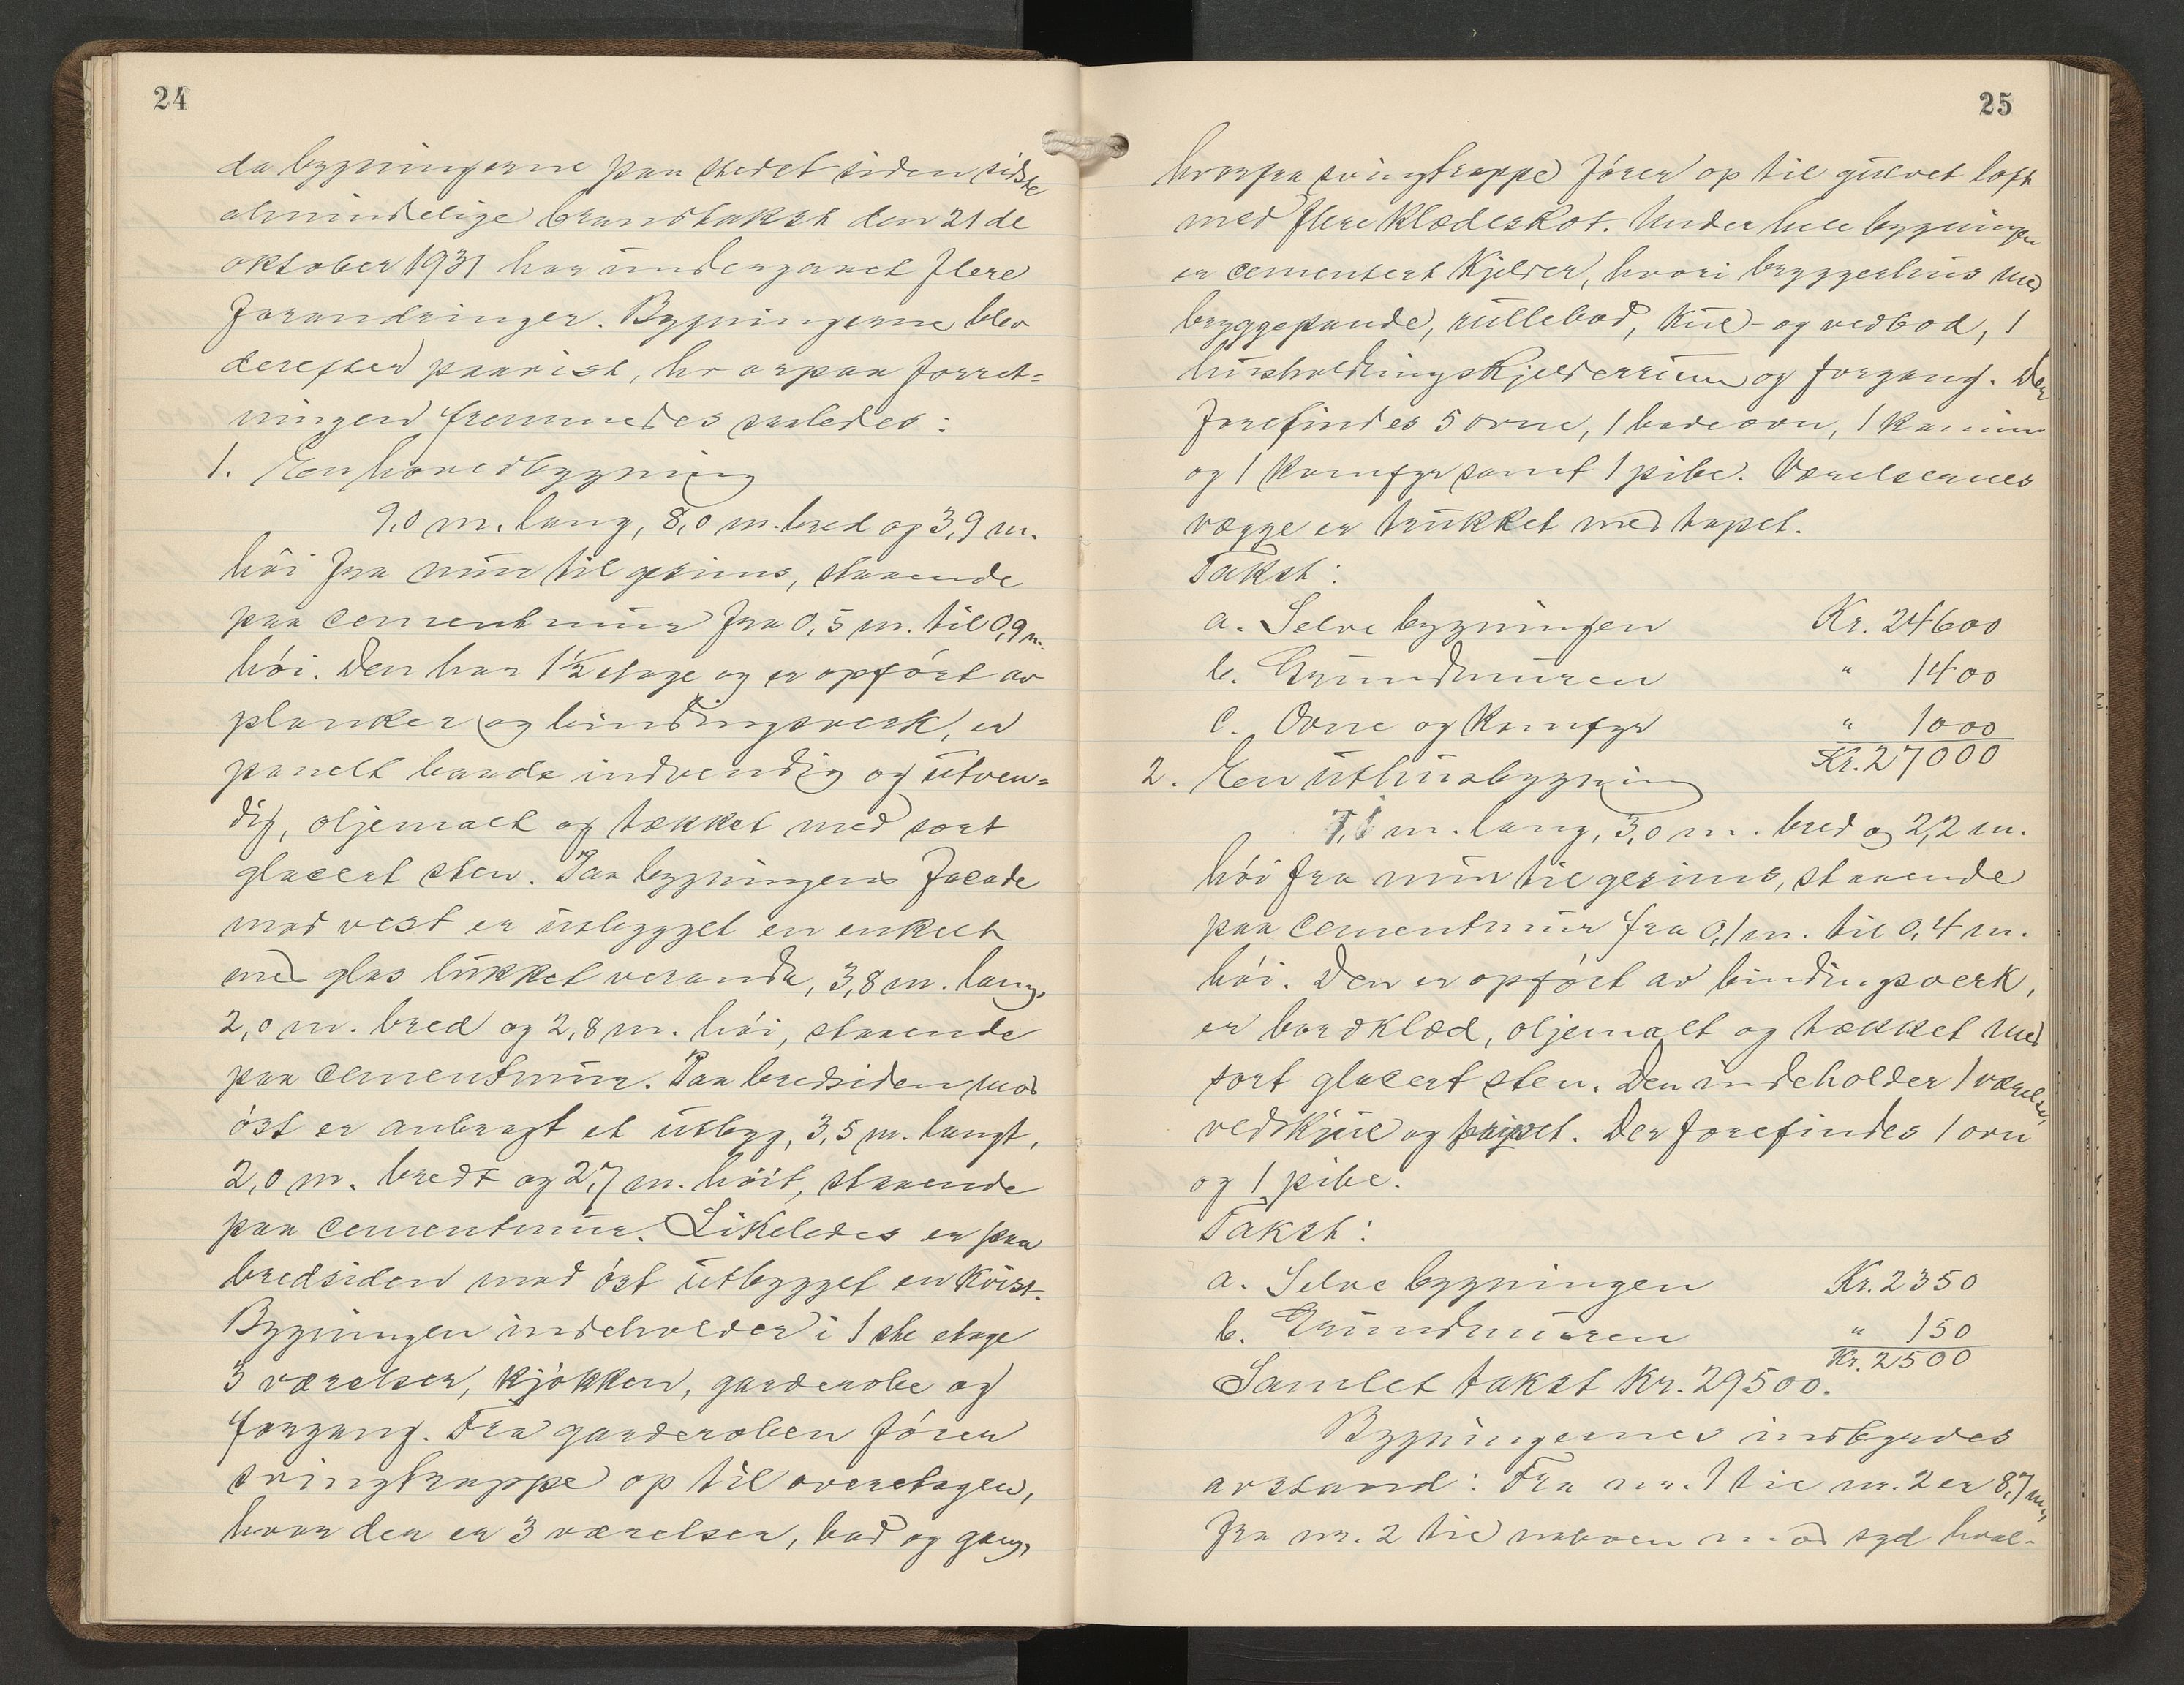 24
da bygningerne paa stedet siden sidste
almindelige brandtakst den 21 de
oktober 1931 har undergaaet flere
forandringer. Bygningerne blev
derefter paavist, hvorpaa forret=
ningen fremmedes saaledes:
1. En hovedbygning
9,0 m. lang, 8,0 m. bred og 3,9 m.
høi fra mur til gesims, staaende
paa cementmur fra 0,5 m. til 0,9 m.
høi. Den har 1½ etage og er opført av
planker og bindingsverk, er
panelt baade indvendig og utven=
dig, oljemalt og tækket med sort
glacert sten. Paa bygningens facade
mod vest er utbygget en enkelt
med glas lukket veranda, 3,8 m. lang,
2,0 m. bred og 2,8 m. høi, staaende
paa cementmur. Paa bredsiden mod
øst er anbragt et utbygg, 3,5 m. langt,
2,0 m. bredt og 2,7 m. høit, staaende
paa cementmur. Likeledes er paa
bredsiden mod øst utbygget en kvist.
Bygningen indeholder i 1 ste etage
3 værelser, kjøkken, garderobe og
forgang. Fra garderoben fører
svingtrappe op til overetagen,
hvor der er 3 værelser, bad og gang,
25
hvorfra svingtrappe fører op til gulvet loft
med flere klædeskot. Under hele bygningen
er cementert kjelder, hvori bryggerhus med
bryggepande, rullebod, kul- og vedbod, 1
husholdningskjelderrum og forgang. Der
forefindes 5 ovne, 1 badeovn, 1 kamin
og 1 komfyr samt 1 pibe. Værelsernes
vægge er trukket med tapet.
Takst:
a. Selve bygningen Kr. 24600
b. Grundmuren " 1400
c. Ovne og komfyr " 1000
Kr. 27000
2. En uthusbygning
7,1 m. lang, 3,0 m. bred og 2,2 m.
høi fra mur til gesims, staaende
paa cementmur fra 0,1 m. til 0,4 m.
høi. Den er opført av bindingsverk,
er bordklæd, oljemalt og tækket med
sort glacert sten. Den indeholder 1 værelse,
vedskjul og priset. Der forefindes 1 ovn
og 1 pibe.
Takst:
a. Selve bygningen Kr. 2350
b. Grundmuren " 150
Kr. 2500
Samlet takst Kr. 29500.
Bygningernes indbyrdes
avstand: Fra nr. 1 til nr. 2 er 8,7 m,
fra nr. 2 til naboen mod syd hval-